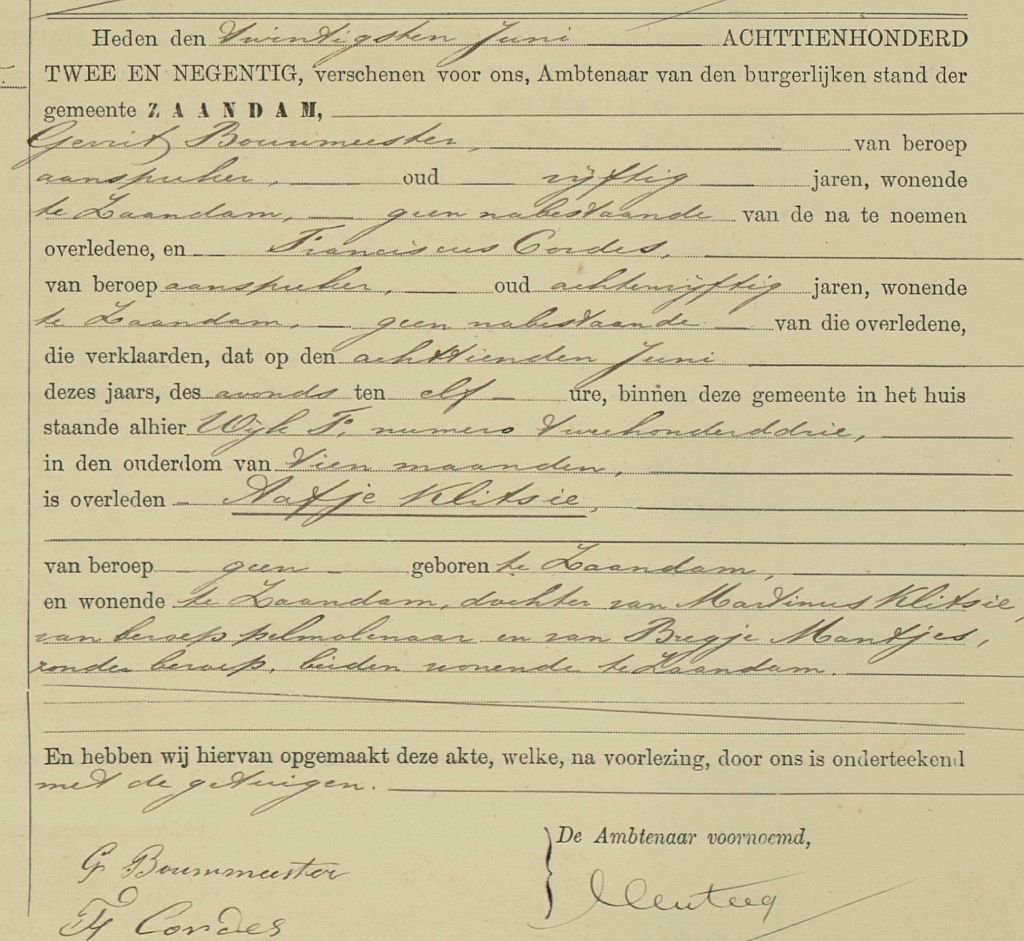 Heden den twintigsten Juni ACHTTIENHONDERD
TWEE EN NEGENTIG, verschenen voor ons, Ambtenaar van den burgerlijken stand der
gemeente ZAANDAM,
Gerrit Bouwmeester, van beroep
aanspreker, oud vijftig jaren, wonende
te Zaandam, geen nabestaande van de na te noemen
overledene, en Franciscus Cordes,
van beroep aanspreker, oud achtenvijftig jaren, wonende
te Zaandam, geen nabestaande van die overledene,
die verklaarden, dat op den achttienden Juni
dezes jaars, des avonds ten elf ure, binnen deze gemeente in het huis
staande alhier Wijk F, numero tweehonderddrie,
in den ouderdom van tien maanden,
is overleden Aafje Klitsie,
van beroep geen geboren te Zaandam,
en wonende te Zaandam, dochter van Martinus Klitsie,
van beroep pelmolenaar en van Bregje Mantjes,
zonder beroep, beiden wonende te Zaandam.
En hebben wij hiervan opgemaakt deze akte, welke, na voorlezing, door ons is onderteekend
met de getuigen.
De Ambtenaar voornoemd,
G Bouwmeester
F Cordes